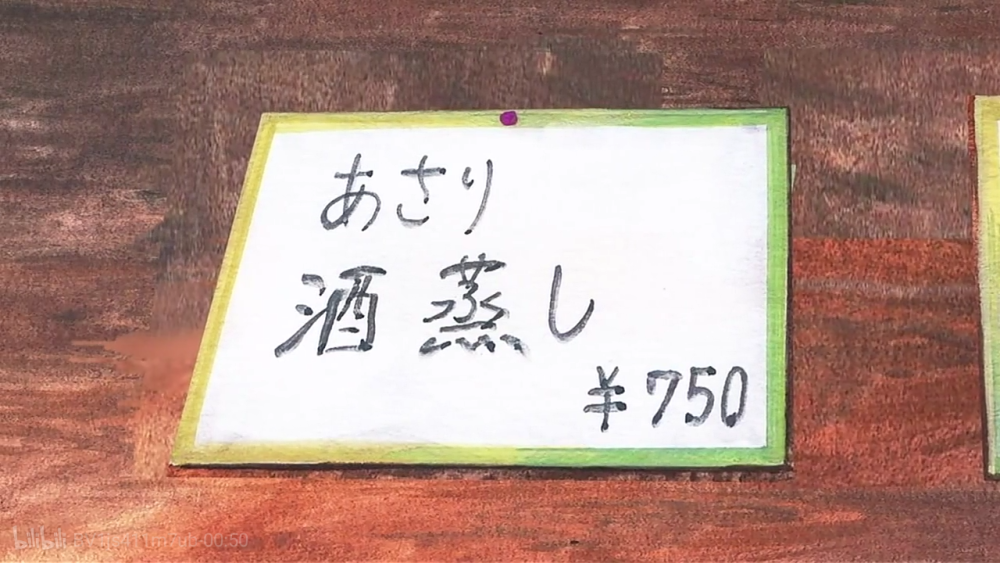 あさり
酒蒸し
¥750
bilibili